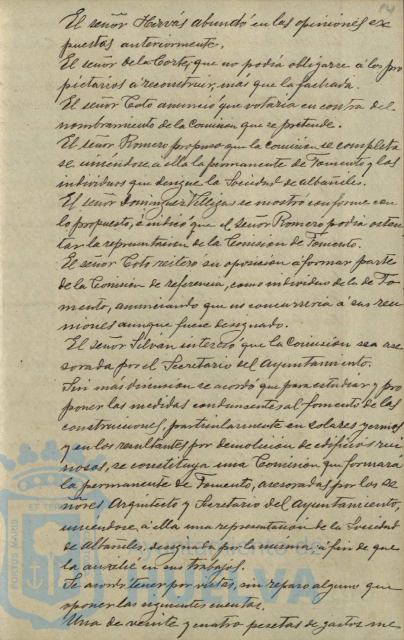 El señor Hervás abundó en las opiniones ex
puestas anteriormente.
El señor de la Corte, que no podía obligarse á los pro
pietarios á reconstruir, más que la fachada.
El señor Coto anunció que votaria en contra del
nombramiento de la Comision que se pretende.
El señor Romero propuso que la Comision se completa
se uniéndose á ella la permanente de Fomento y los
individuos que designe la Sociedad de Albañiles.
El señor Dominguez Villegas se mostró conforme con
lo propuesto, é indicó que el señor Romero podía osten
tar la representacion de la Comision de Fomento.
El señor Coto reiteró su oposicion á formar parte
de la Comision de referencia, como individuo de la de Fo
mento, anunciando que no concurriria á sus reu
niones aunque fuese designado.
El señor Silván interesó que la Comision sea ase
sorada por el Secretario del Ayuntamiento.
Sin más discusion se acordó que para estudiar y pro
poner las medidas conducentes al fomento de las
construcciones, particularmente en solares yermos
y en los resultantes por demolicion de edificios rui
nosos, se constituya una Comision que formará
la permanente de Fomento, asesoradas por los se
ñores Arquitecto y Secretario del Ayuntamiento,
uniendose á ella una representacion de la Sociedad
de Albañiles, designada por la misma, á fin de que
la auxilie en sus trabajos.
Se acordó tener por vistas, sin reparo alguno que
oponer las siguientes cuentas.
Una de veinte y cuatro pesetas de gastos me
PORTUS MARIS ET TERRAE